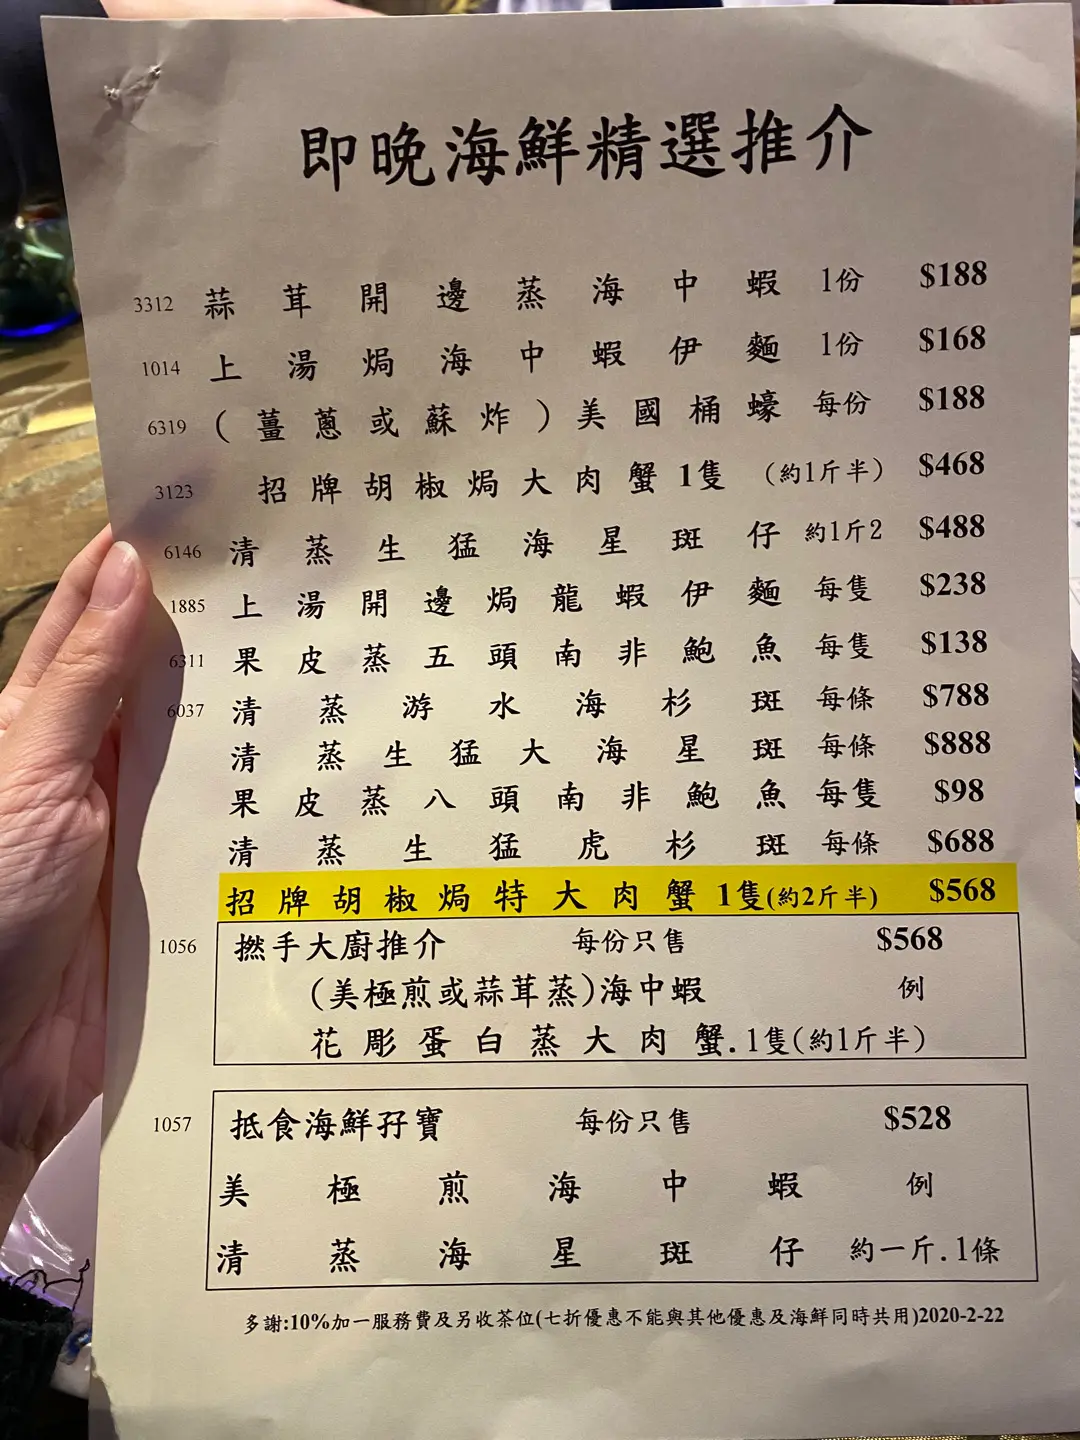 即晚海鮮精選推介
3312 蒜茸開邊蒸海中蝦 1份 $188
1014 上湯焗海中蝦伊麵 1份 $168
6319 (薑蔥或蘇炸)美國桶蠔 每份 $188
3123 招牌胡椒焗大肉蟹1隻 (約1斤半) $468
6146 清蒸生猛海星斑仔 約1斤2 $488
1885 上湯開邊焗龍蝦伊麵 每隻 $238
6311 果皮蒸五頭南非鮑魚 每隻 $138
6037 清蒸游水海杉斑 每條 $788
清蒸生猛大海星斑 每條 $888
果皮蒸八頭南非鮑魚 每隻 $98
清蒸生猛虎杉斑 每條 $688
招牌胡椒焗特大肉蟹1隻(約2斤半) $568
1056 撚手大廚推介 每份只售 $568
(美極煎或蒜茸蒸)海中蝦 例
花彫蛋白蒸大肉蟹.1隻(約1斤半)
1057 抵食海鮮孖寶 每份只售 $528
美極煎海中蝦 例
清蒸海星斑仔 約一斤.1條
多謝:10%加一服務費及另收茶位(七折優惠不能與其他優惠及海鮮同時共用)2020-2-22